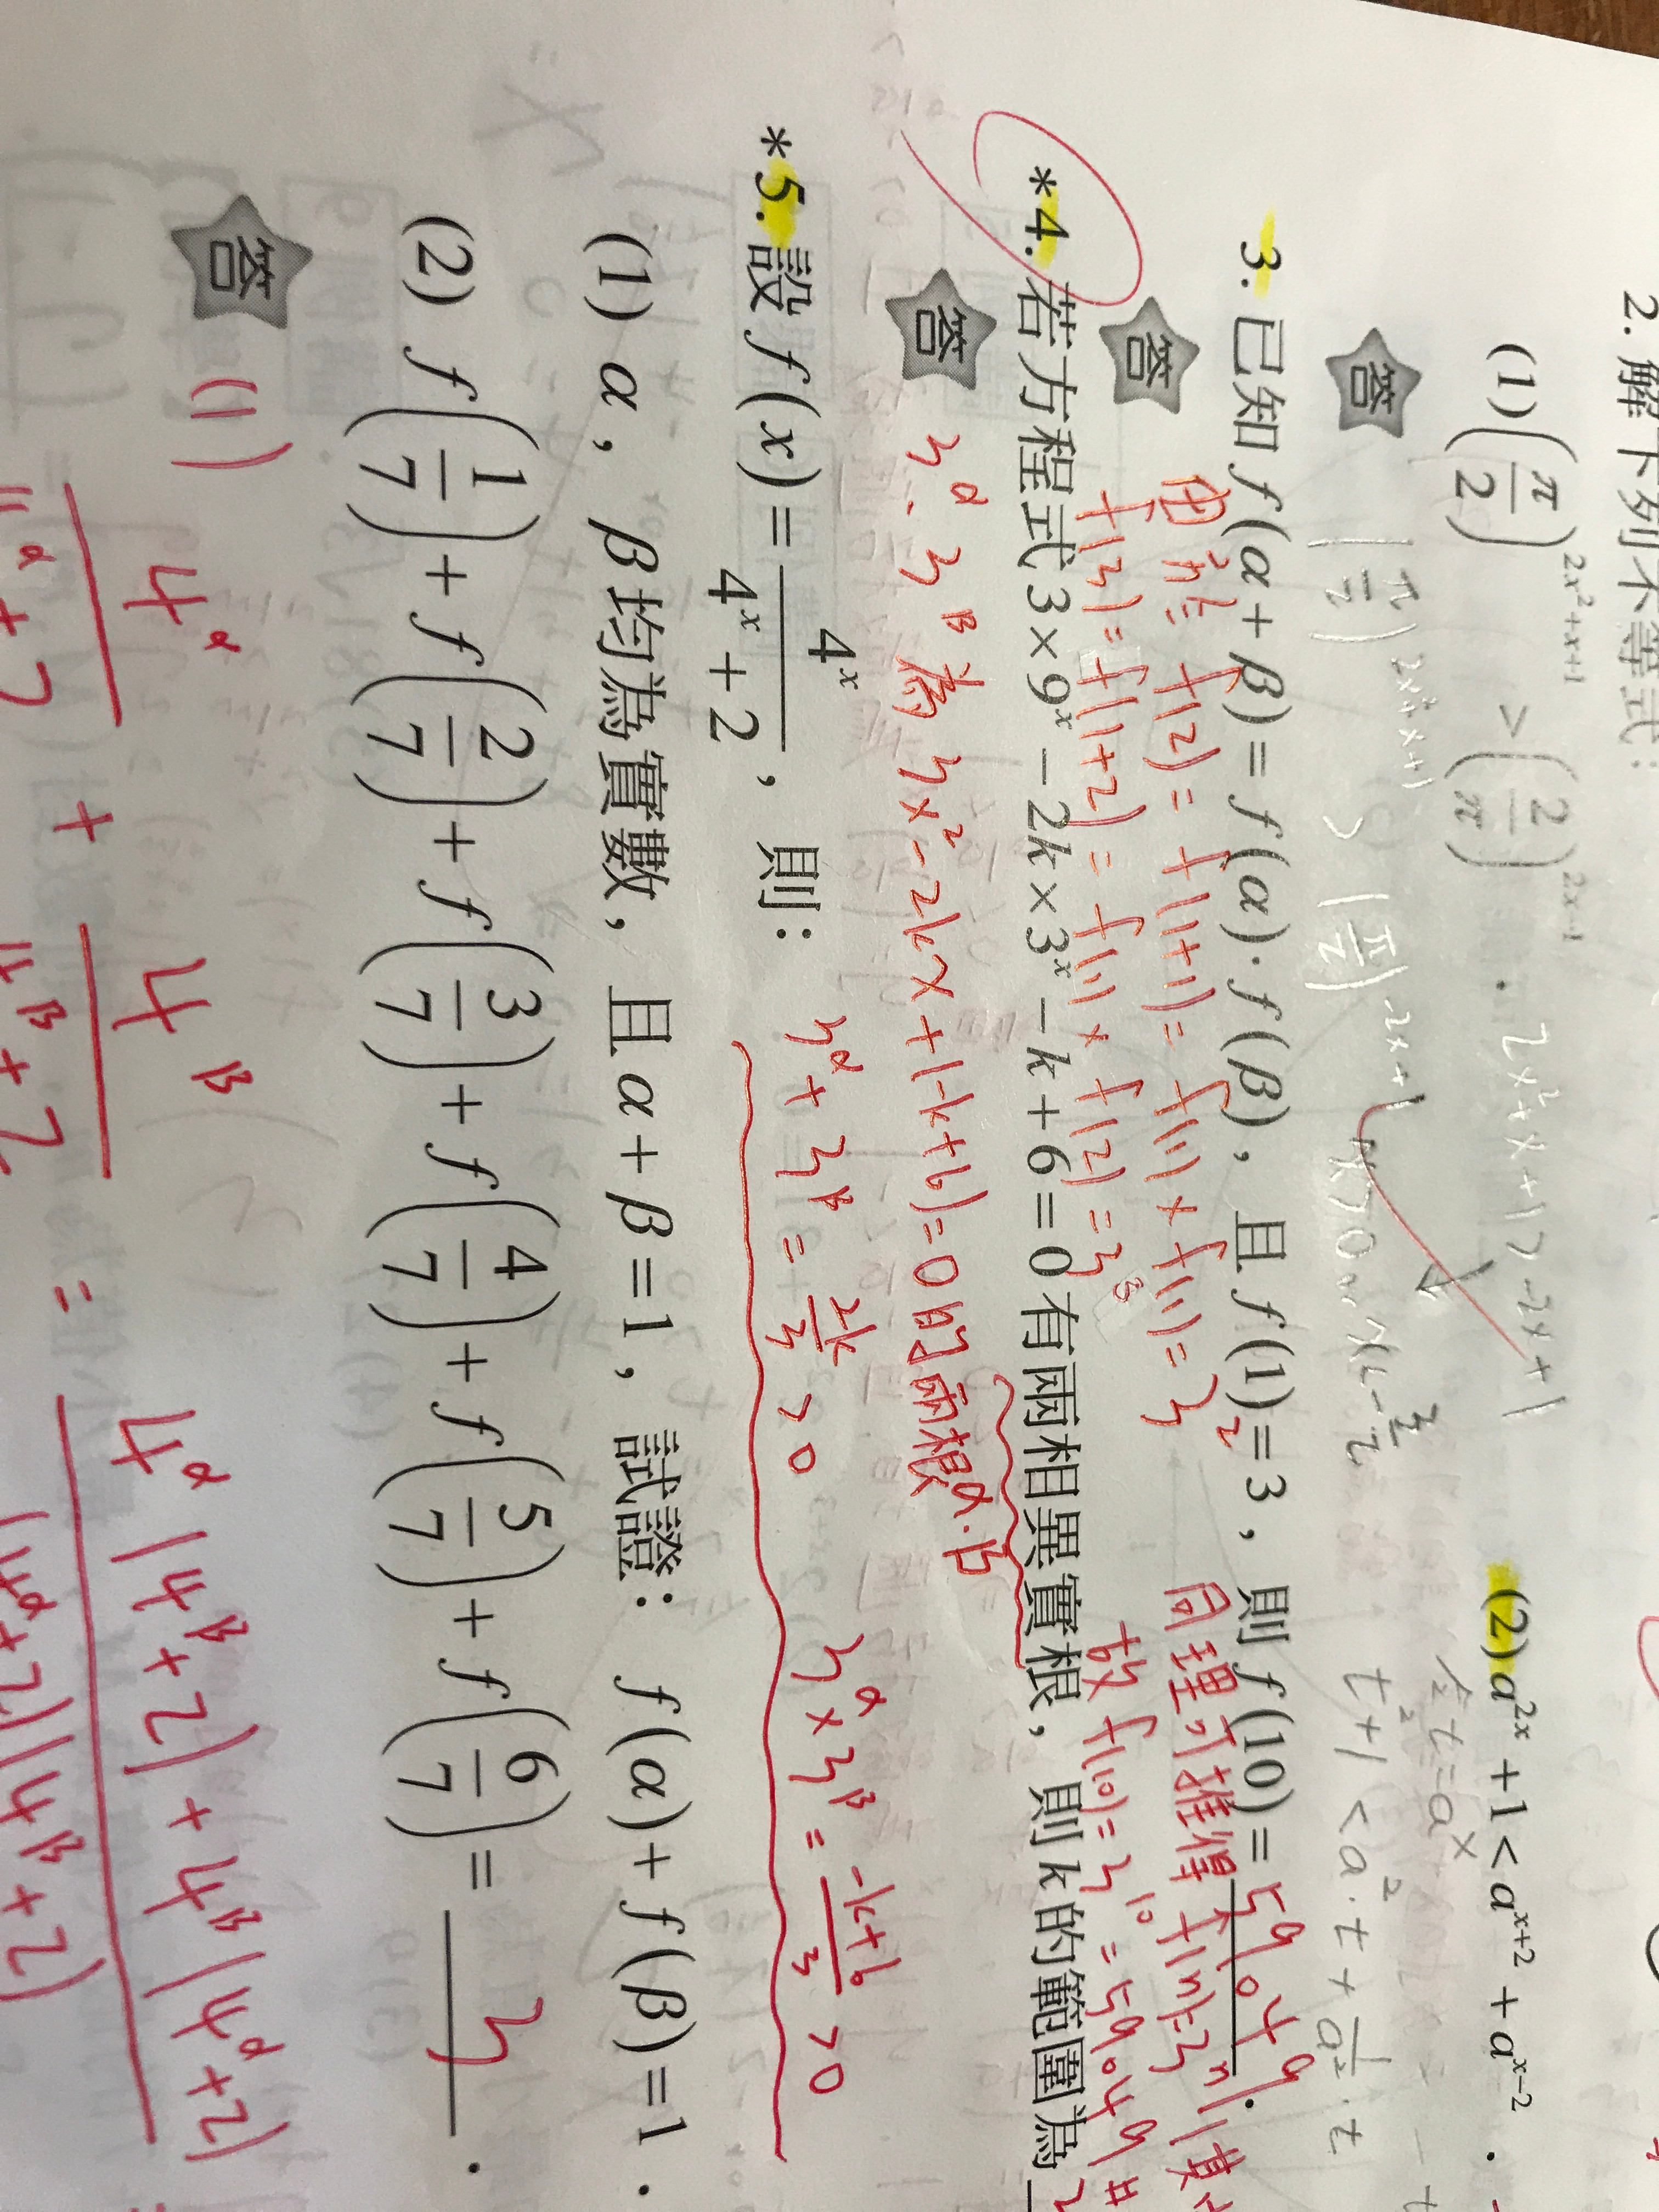 2. 解下列不等式：
(1) (π/2)^(2x²+x+1) > (2/π)^(2x-1) . (2) a^(2x) + 1 < a^(x+2) + a^(x-2) .
2x²+x+1 > -2x+1
令 t = a^x
答 (π/2)^(2x²+x+1) > (π/2)^(-2x+1) x>0 or x<-3/2
t²+1 < a²·t + 1/a²·t
3. 已知 f(α+β) = f(α)·f(β)，且 f(1) = 3，則 f(10) = 59049 .
答 由於 f(2) = f(1+1) = f(1) × f(1) = 3² 同理可推得 f(n)=3^n
f(3) = f(1+2) = f(1) × f(2) = 3³ 故 f(10) = 3^10 = 59049 #
*4. 若方程式 3×9^x − 2k×3^x − k + 6 = 0 有兩相異實根，則 k 的範圍為
答 3^α、3^β 為 3x² - 2kx + (-k+6) = 0 的兩根 α、β
3^α + 3^β = 2k/3 > 0 3^α × 3^β = (-k+6)/3 > 0
*5. 設 f(x) = 4^x/(4^x + 2)，則：
(1) α，β 均為實數，且 α + β = 1，試證：f(α) + f(β) = 1 .
(2) f(1/7) + f(2/7) + f(3/7) + f(4/7) + f(5/7) + f(6/7) = 3 .
答 (1) 4^α/(4^α+2) + 4^β/(4^β+2) = (4^α(4^β+2) + 4^β(4^α+2))/((4^α+2)(4^β+2))